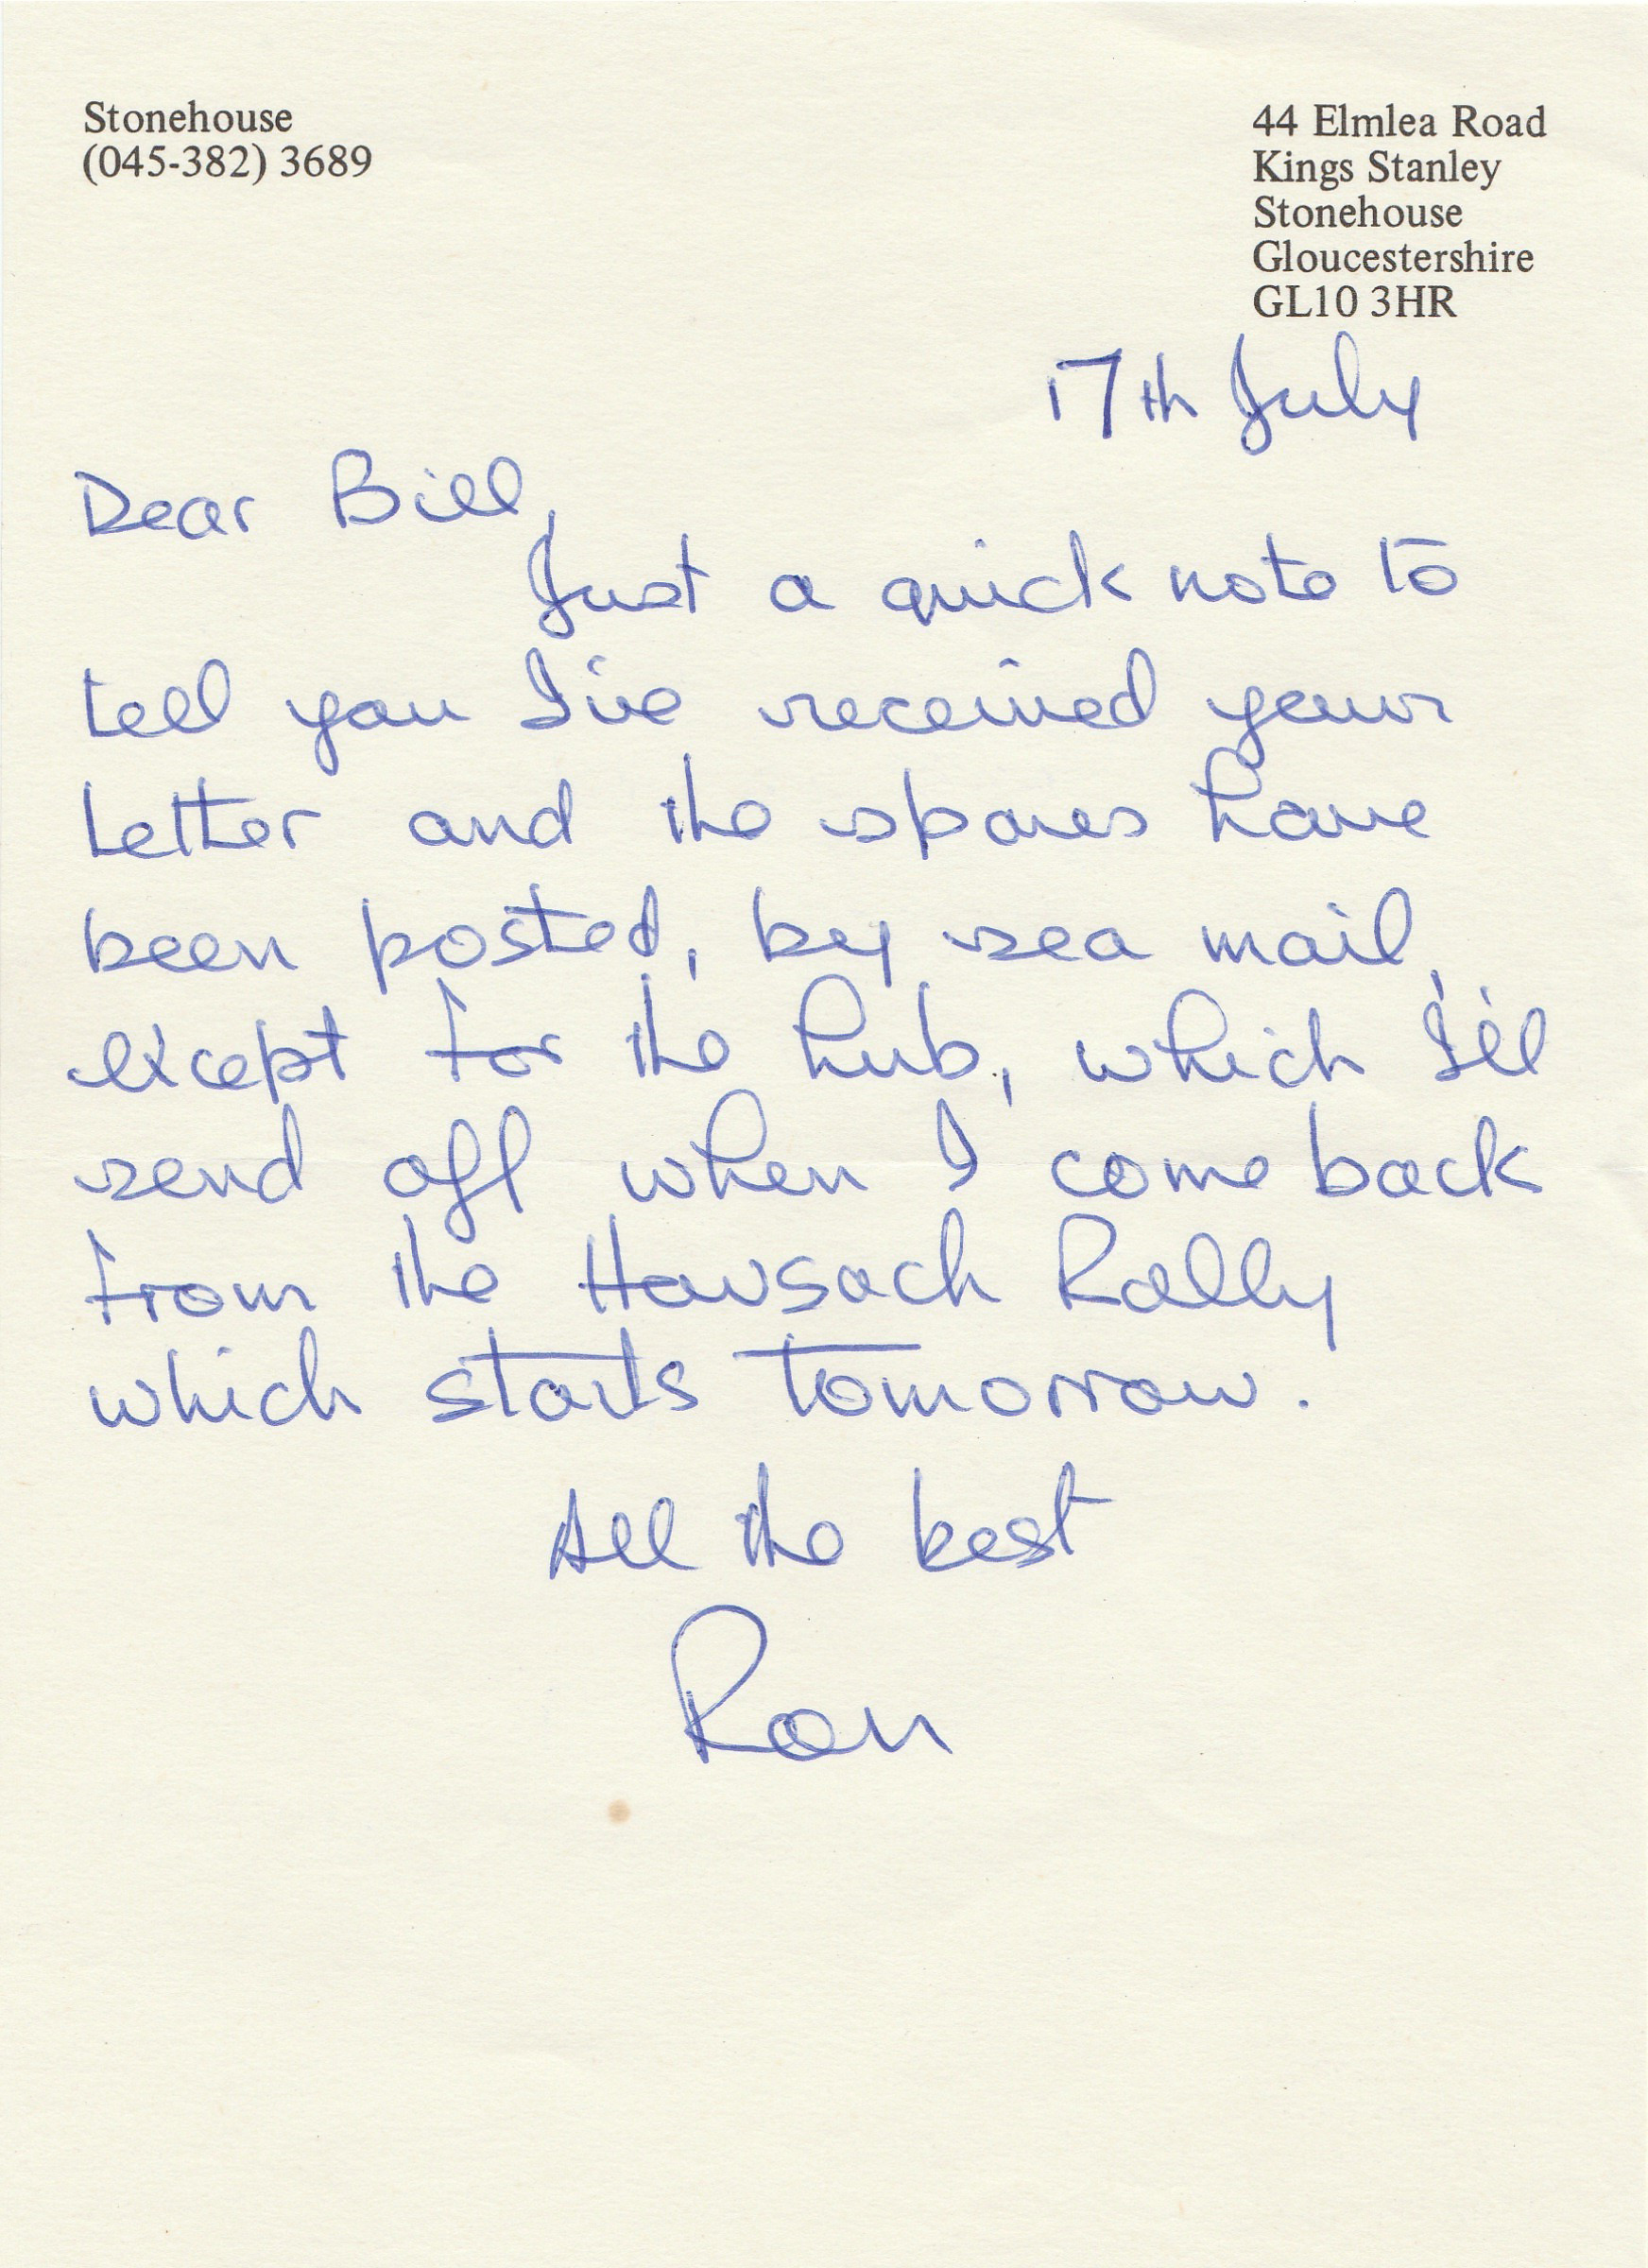 Stonehouse
(045-382) 3689
44 Elmlea Road
Kings Stanley
Stonehouse
Gloucestershire
GL10 3HR
17th July
Dear Bill,
Just a quick note to
tell you I've received your
letter and the spares have
been posted, by sea mail,
except for the hub, which I'll
send off when I come back
from the Hausach Rally
which starts tomorrow.
All the best
Ron